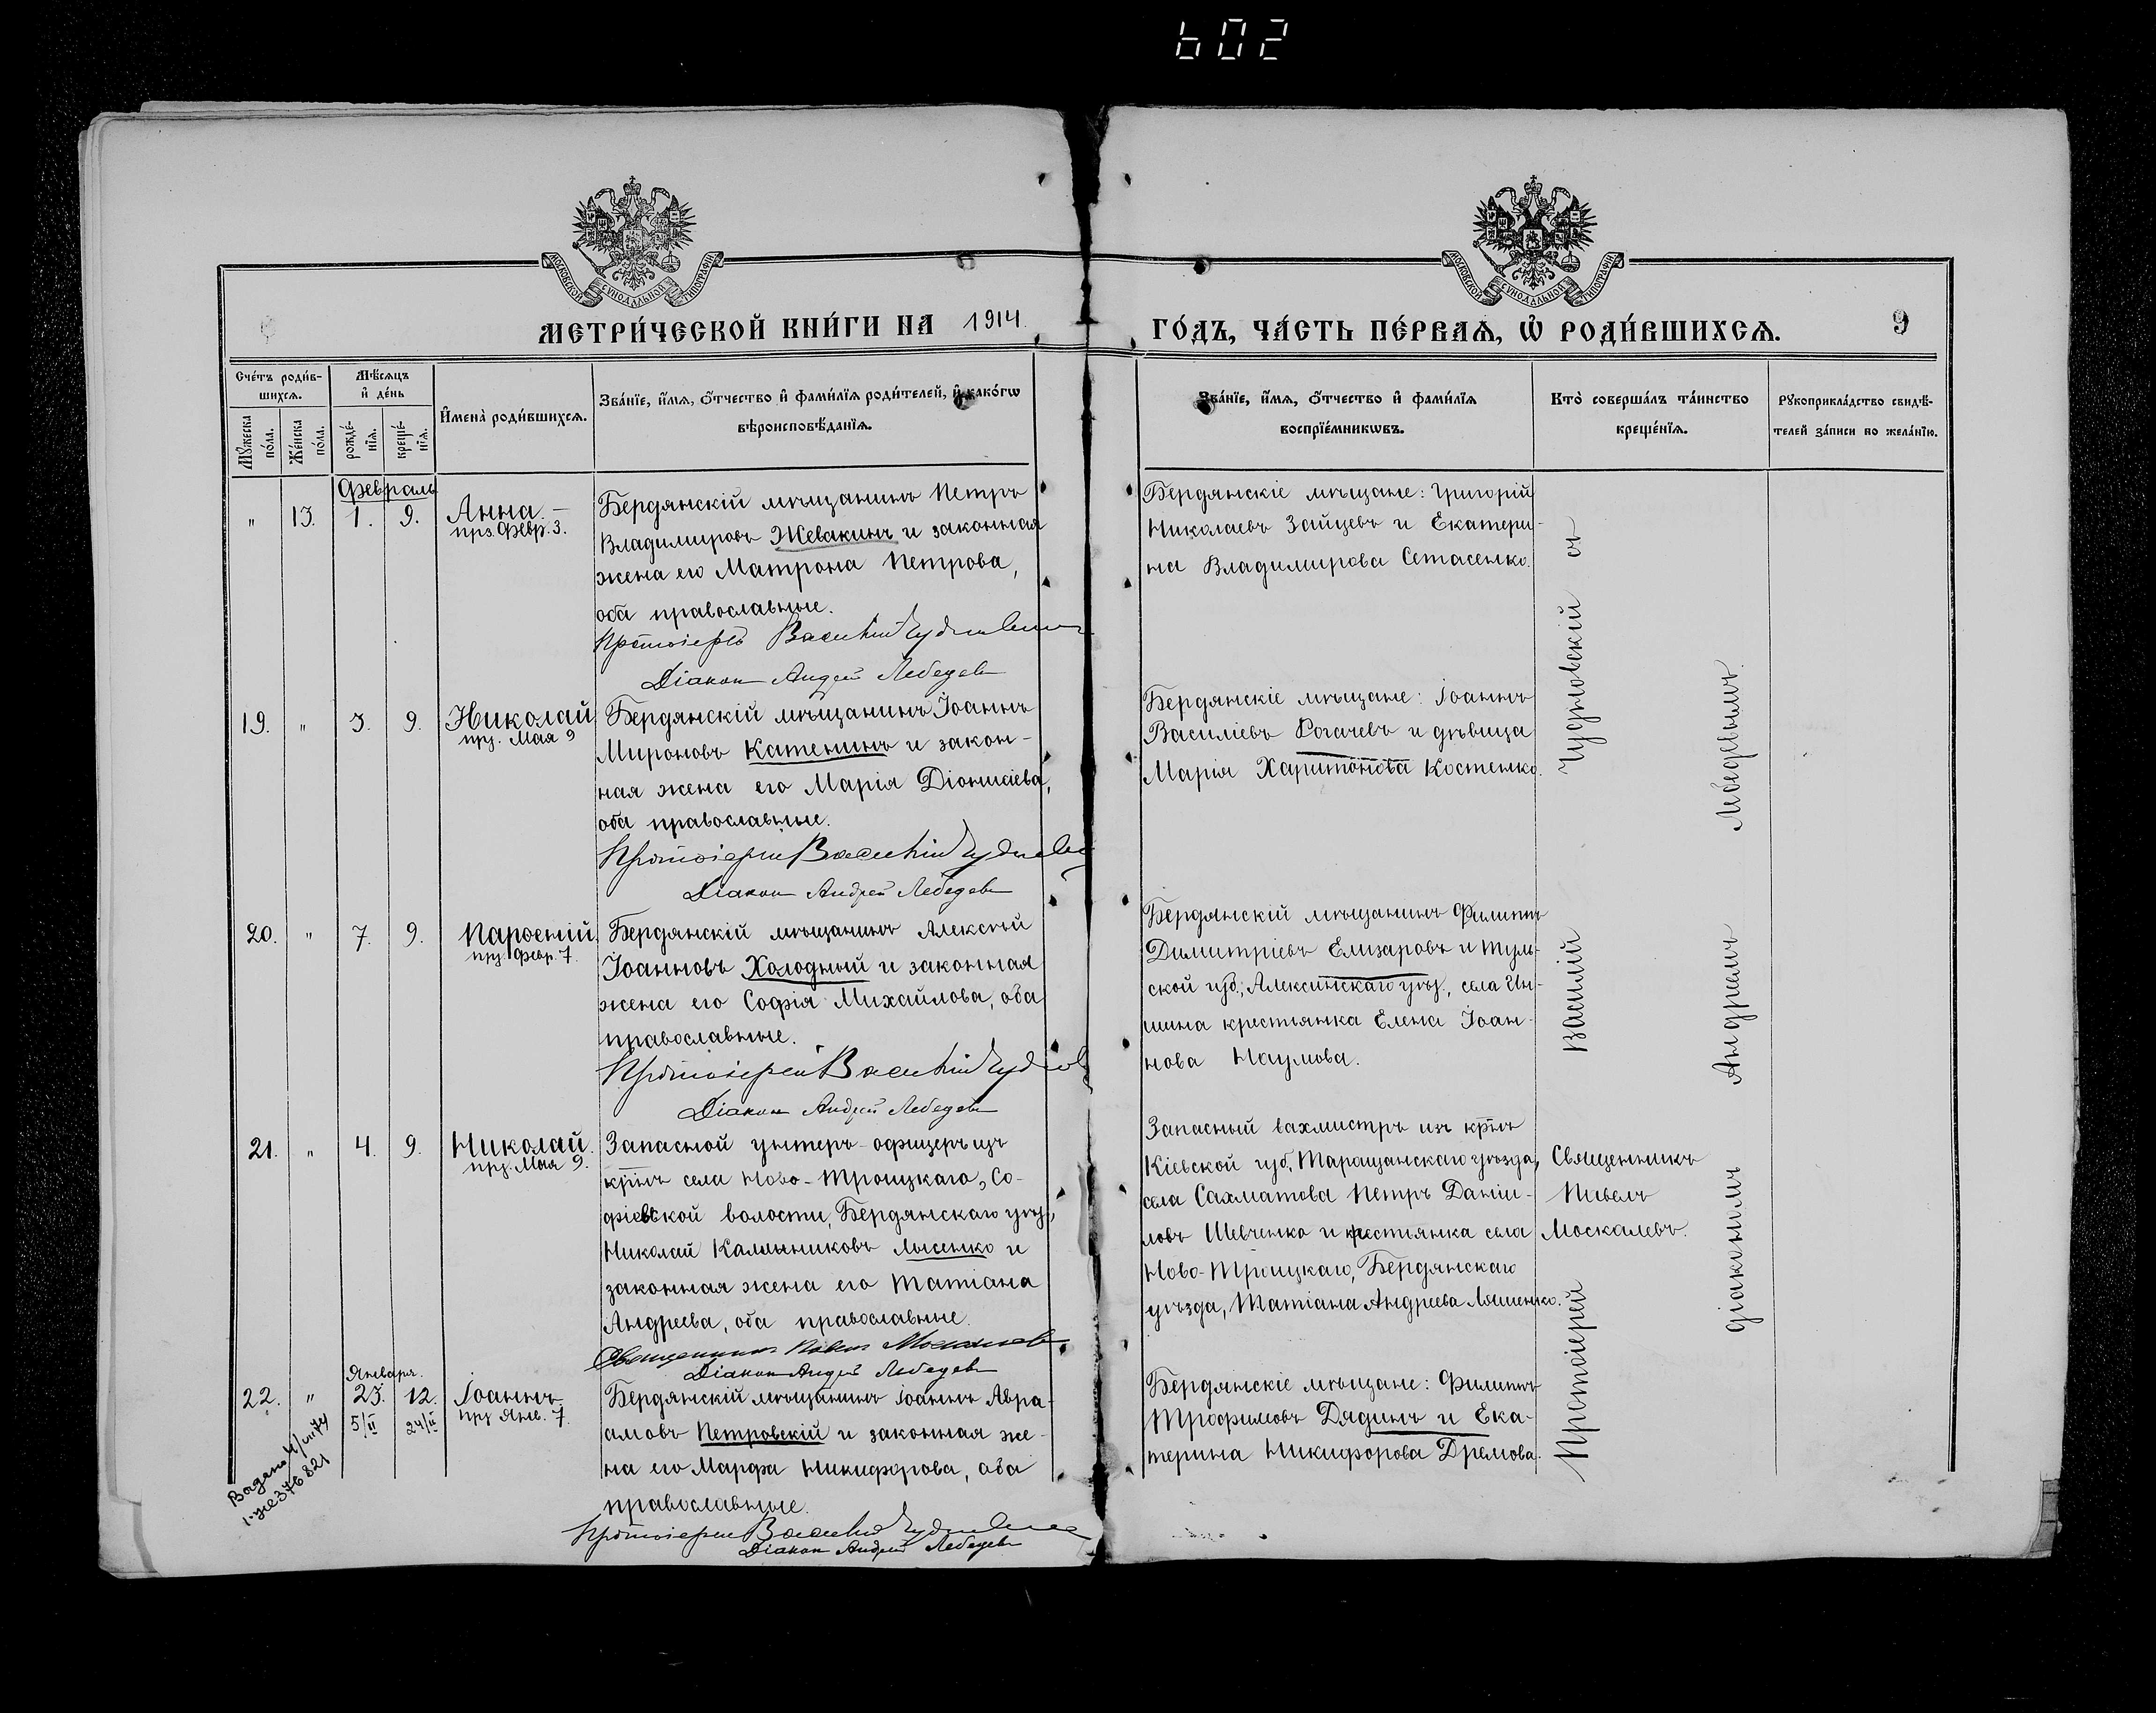 602
МОСКОВСКОЙ СУНОДАЛЬНОЙ ТИПОГРАФІИ
МОСКОВСКОЙ СУНОДАЛЬНОЙ ТИПОГРАФІИ
МЕТРИ́ЧЕСКОЙ КНИ́ГИ НА 1914
ГО́ДЪ, ЧА́СТЬ ПЕ́РВАѦ, Ѡ҆ РОДИ́ВШИХСѦ.
9
Сче́тъ роди́в-
шихсѧ.
Мꙋ́жеска
по́ла.
Же́нска
по́ла.
Мѣ́сѧцъ
и҆ де́нь
рожде́-
нїѧ.
креще́-
нїѧ.
И҆мена̀ роди́вшихсѧ.
Зва́нїе, и҆́мѧ, ѻ҆́тчество и҆ фами́лїѧ роди́телей, и҆ како́гѡ
вѣроисповѣ́данїѧ.
Зва́нїе, и҆́мѧ, ѻ҆́тчество и҆ фами́лїѧ
воспрїе́мникѡвъ.
Кто̀ соверша́лъ та́инство
креще́нїѧ.
Рꙋкоприкла́дство свидѣ́-
телей за́писи по жела́нїю.
Февраль
" 13. 1. 9. Анна.
прз. Февр. 3.
Бердянскій мѣщанинъ Петръ
Владимировъ Жевакинъ и законная
жена его Матрона Петрова,
оба православные.
Протоіерей Василій Чудновскій
Діаконъ Андрей Лебедевъ
Бердянскіе мѣщане: Григорій
Николаевъ Зайцевъ и Екатери-
на Владимирова Сетасенко.
19. " 3. 9. Николай
прз. Мая 9
Бердянскій мѣщанинъ Іоаннъ
Мироновъ Катенинъ и закон-
ная жена его Марія Діонисіева,
оба православные.
Протоіерей Василій Чудновскій
Діаконъ Андрей Лебедевъ
Бердянскіе мѣщане: Іоаннъ
Василіевъ Рогачевъ и дѣвица
Марія Харитонова Костенко.
20. " 7. 9. Парѳеній.
прз. Февр. 7.
Бердянскій мѣщанинъ Алексѣй
Іоанновъ Холодный и законная
жена его Софія Михайлова, оба
православные.
Протоіерей Василій Чудновскій
Діаконъ Андрей Лебедевъ
Бердянскій мѣщанинъ Филиппъ
Димитріевъ Елизаровъ и Туль-
ской губ., Алексинскаго уѣз., села Ин-
шина крестьянка Елена Іоан-
нова Наумова.
21. " 4. 9. Николай.
прз. Мая 9.
Запасной унтеръ-офицеръ изъ
кр̅нъ села Ново-Троицкаго, Со-
фіевской волости, Бердянскаго уѣз.,
Николай Калинниковъ Лысенко и
законная жена его Татіана
Андреева, оба православные.
Священникъ Павелъ Москалевъ
Діаконъ Андрей Лебедевъ
Запасный вахмистръ изъ кр̅нъ
Кіевской губ., Таращанскаго уѣзда,
села Сахматова Петръ Даніи-
ловъ Шевченко и крестьянка села
Ново-Троицкаго, Бердянскаго
уѣзда, Татіана Андреева Ляшенко.
Священникъ
Павелъ
Москалевъ.
Января.
22. " 23. 12. Іоаннъ
5/II 24/II прз Янв. 7.
Бердянскій мѣщанинъ Іоаннъ Авра-
амовъ Петровскій и законная же-
на его Марфа Никифорова, оба
православные.
Протоіерей Василій Чудновскій
Діаконъ Андрей Лебедевъ
Бердянскіе мѣщане: Филиппъ
Трофимовъ Дядинъ и Ека-
терина Никифорова Дремова.
Протоіерей Василій Чудновскій съ
діакономъ Андреемъ Лебедевымъ.
376821